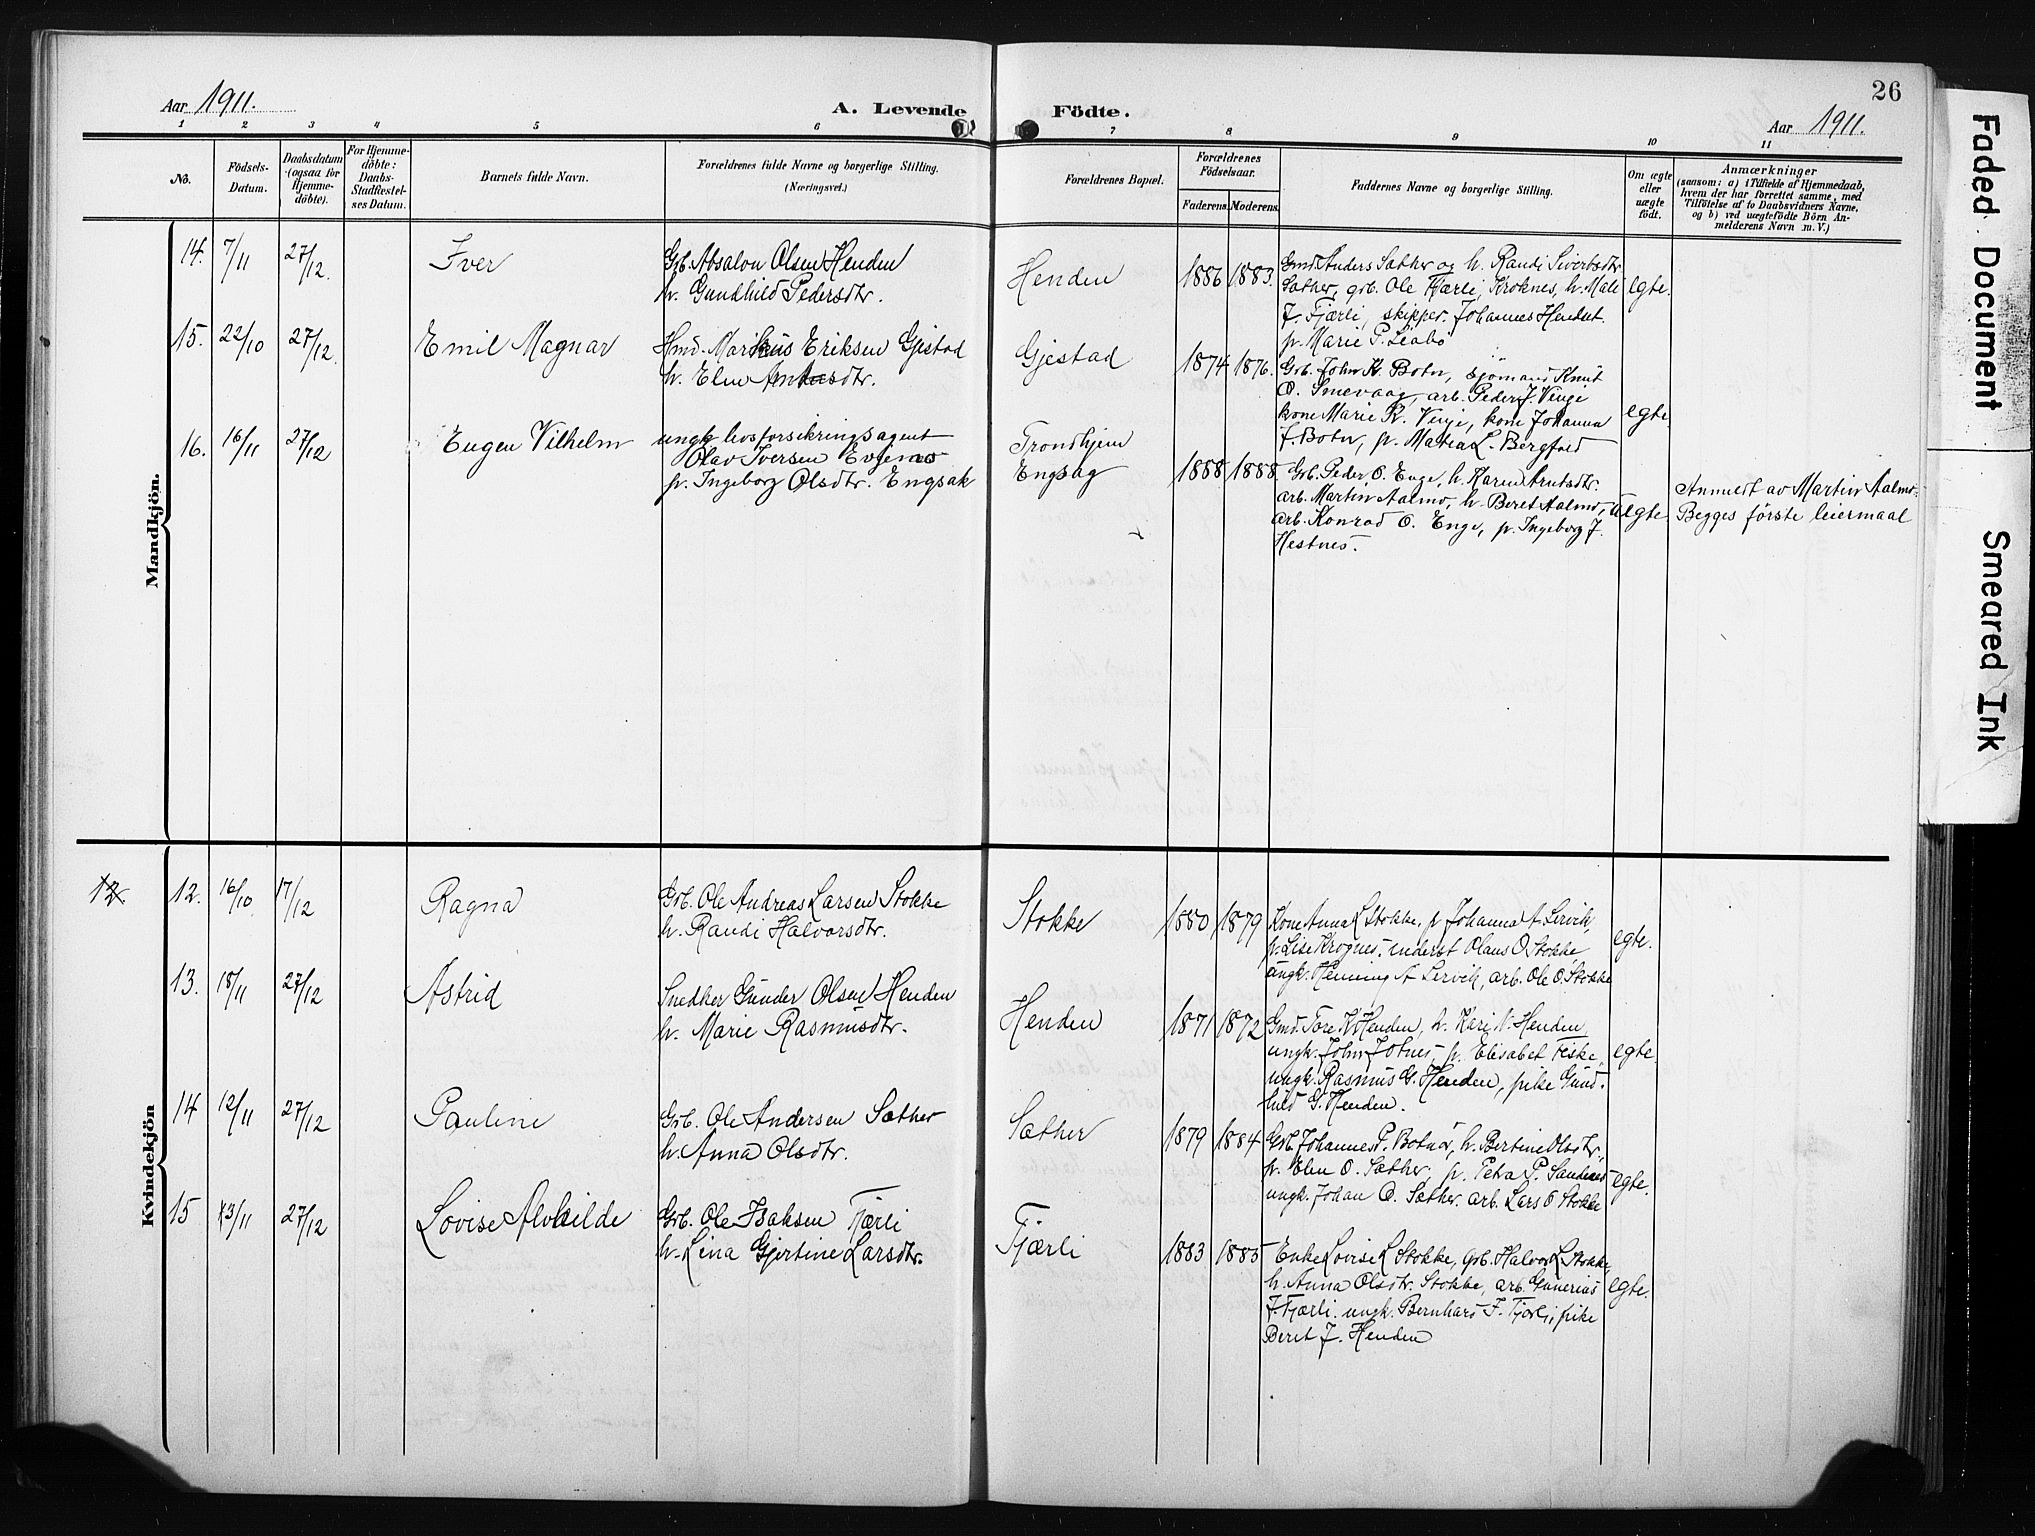 26
Aar 1911.
A. Levende
Födte.
Aar 1911.
1 2 3 4 5 6 7 8 9 10 11
No.
Födsels-
Datum.
Daabsdatum
(ogsaa for
Hjemme-
döbte).
For Hjemme-
döbte:
Daabs-
Stadfæstel-
ses Datum.
Barnets fulde Navn.
Forældrenes fulde Navne og borgerlige Stilling.
(Næringsvei.)
Forældrenes Bopæl.
Forældrenes
Födselsaar.
Faderens. Moderens.
Faddernes Navne og borgerlige Stilling.
Om ægte
eller
uægte
födt.
Anmærkninger
(saasom: a) i Tilfælde af Hjemmedaab,
hvem der har forrettet samme, med
Tilföielse af to Daabsvidners Navne,
og b) ved uægtefödte Börn An-
melderens Navn m. V.)
Mandkjön.
14. 7/11 27/12. Iver
Grb. Absalon Olsen Henden
h. Gundhild Pedersdtr.
Henden 1886 1883.
Gmd. Anders Sæther og h. Randi Sivertsdtr
Sæther, grb. Ole Fjærli, Kroknes, h. Mali
J. Fjærli, skipper. Johannes Hendset.
p. Marie P. Leabö
egte.
15. 22/10 27/12. Emil Magnar
Hmd. Markus Eriksen Gjestad
h. Elen
Gjestad 1874 1876.
Grb. John K. Botn, sjömand Knut
O. Smevaag, arb. Peder J. Vinje
kone Marie K. Vinje, kone Johanna
J. Botn, p. Matea L. Bergfald
egte.
16. 16/11 27/12 Eugen Vilhelm
ungk. livsforsikringsagent
Olav Iversen Evjemo
p. Ingeborg Olsdtr. Engsak
Trondhjem
Engsag
1888 1888.
Grb. Peder O. Enge, h. Karen Arntsdtr.
arb. Martin Aalmo, h. Beret Aalmo,
arb. Konrad O. Enge, p. Ingeborg J.
Hestnes.
uegte
Anmeldt av Martin Aalmo.
Begges förste leiermaal
Kvindekjön
12. 12. 16/10 17/12 Ragna
Grb. Ole Andreas Larsen Stokke
h. Randi Halvorsdtr.
Stokke 1880 1879
Kone Anna L Stokke, p Johanna A. Lervik,
p. Lise Krognes, inderst Olaus O. Stokke,
ungk. Henning A Lervik, arb. Ole O. Stokke
egte.
13. 18/11 27/12 Astrid
Snedker Gunder Olsen Henden
h. Marie Rasmusdtr.
Henden 1871 1872
Gmd. Tore K Henden, h. Kari N. Henden
ungk. John J Otnes, p. Elisabet Feske,
ungk. Rasmus G. Henden, pike Gund-
hild G. Henden.
egte
14 12/11 27/12 Pauline
Grb. Ole Andersen Sæther
h. Anna Olsdtr.
Sæther 1879 1884
Grb. Johannes P. Botnø, h. Bertine Olsdtr.,
h. Elen O. Sæther, p. Petra P. Sandnes
ungk. Johan O. Sæther. arb. Lars O Stokke
egte.
15 13/11 27/12 Lovise Alvhilde
Grb. Ole Isaksen Fjærli
h. Lina Gjertine Larsdtr.
Fjærli 1883 1885
Enke Lovise L Stokke, grb. Halvor L Stokke,
h. Anna Olsdtr. Stokke, arb. Gunerius
J. Fjærli. ungk. Bernhard J. Fjærli, pike
Beret J. Henden
egte.
Faded Document
Smeared Ink